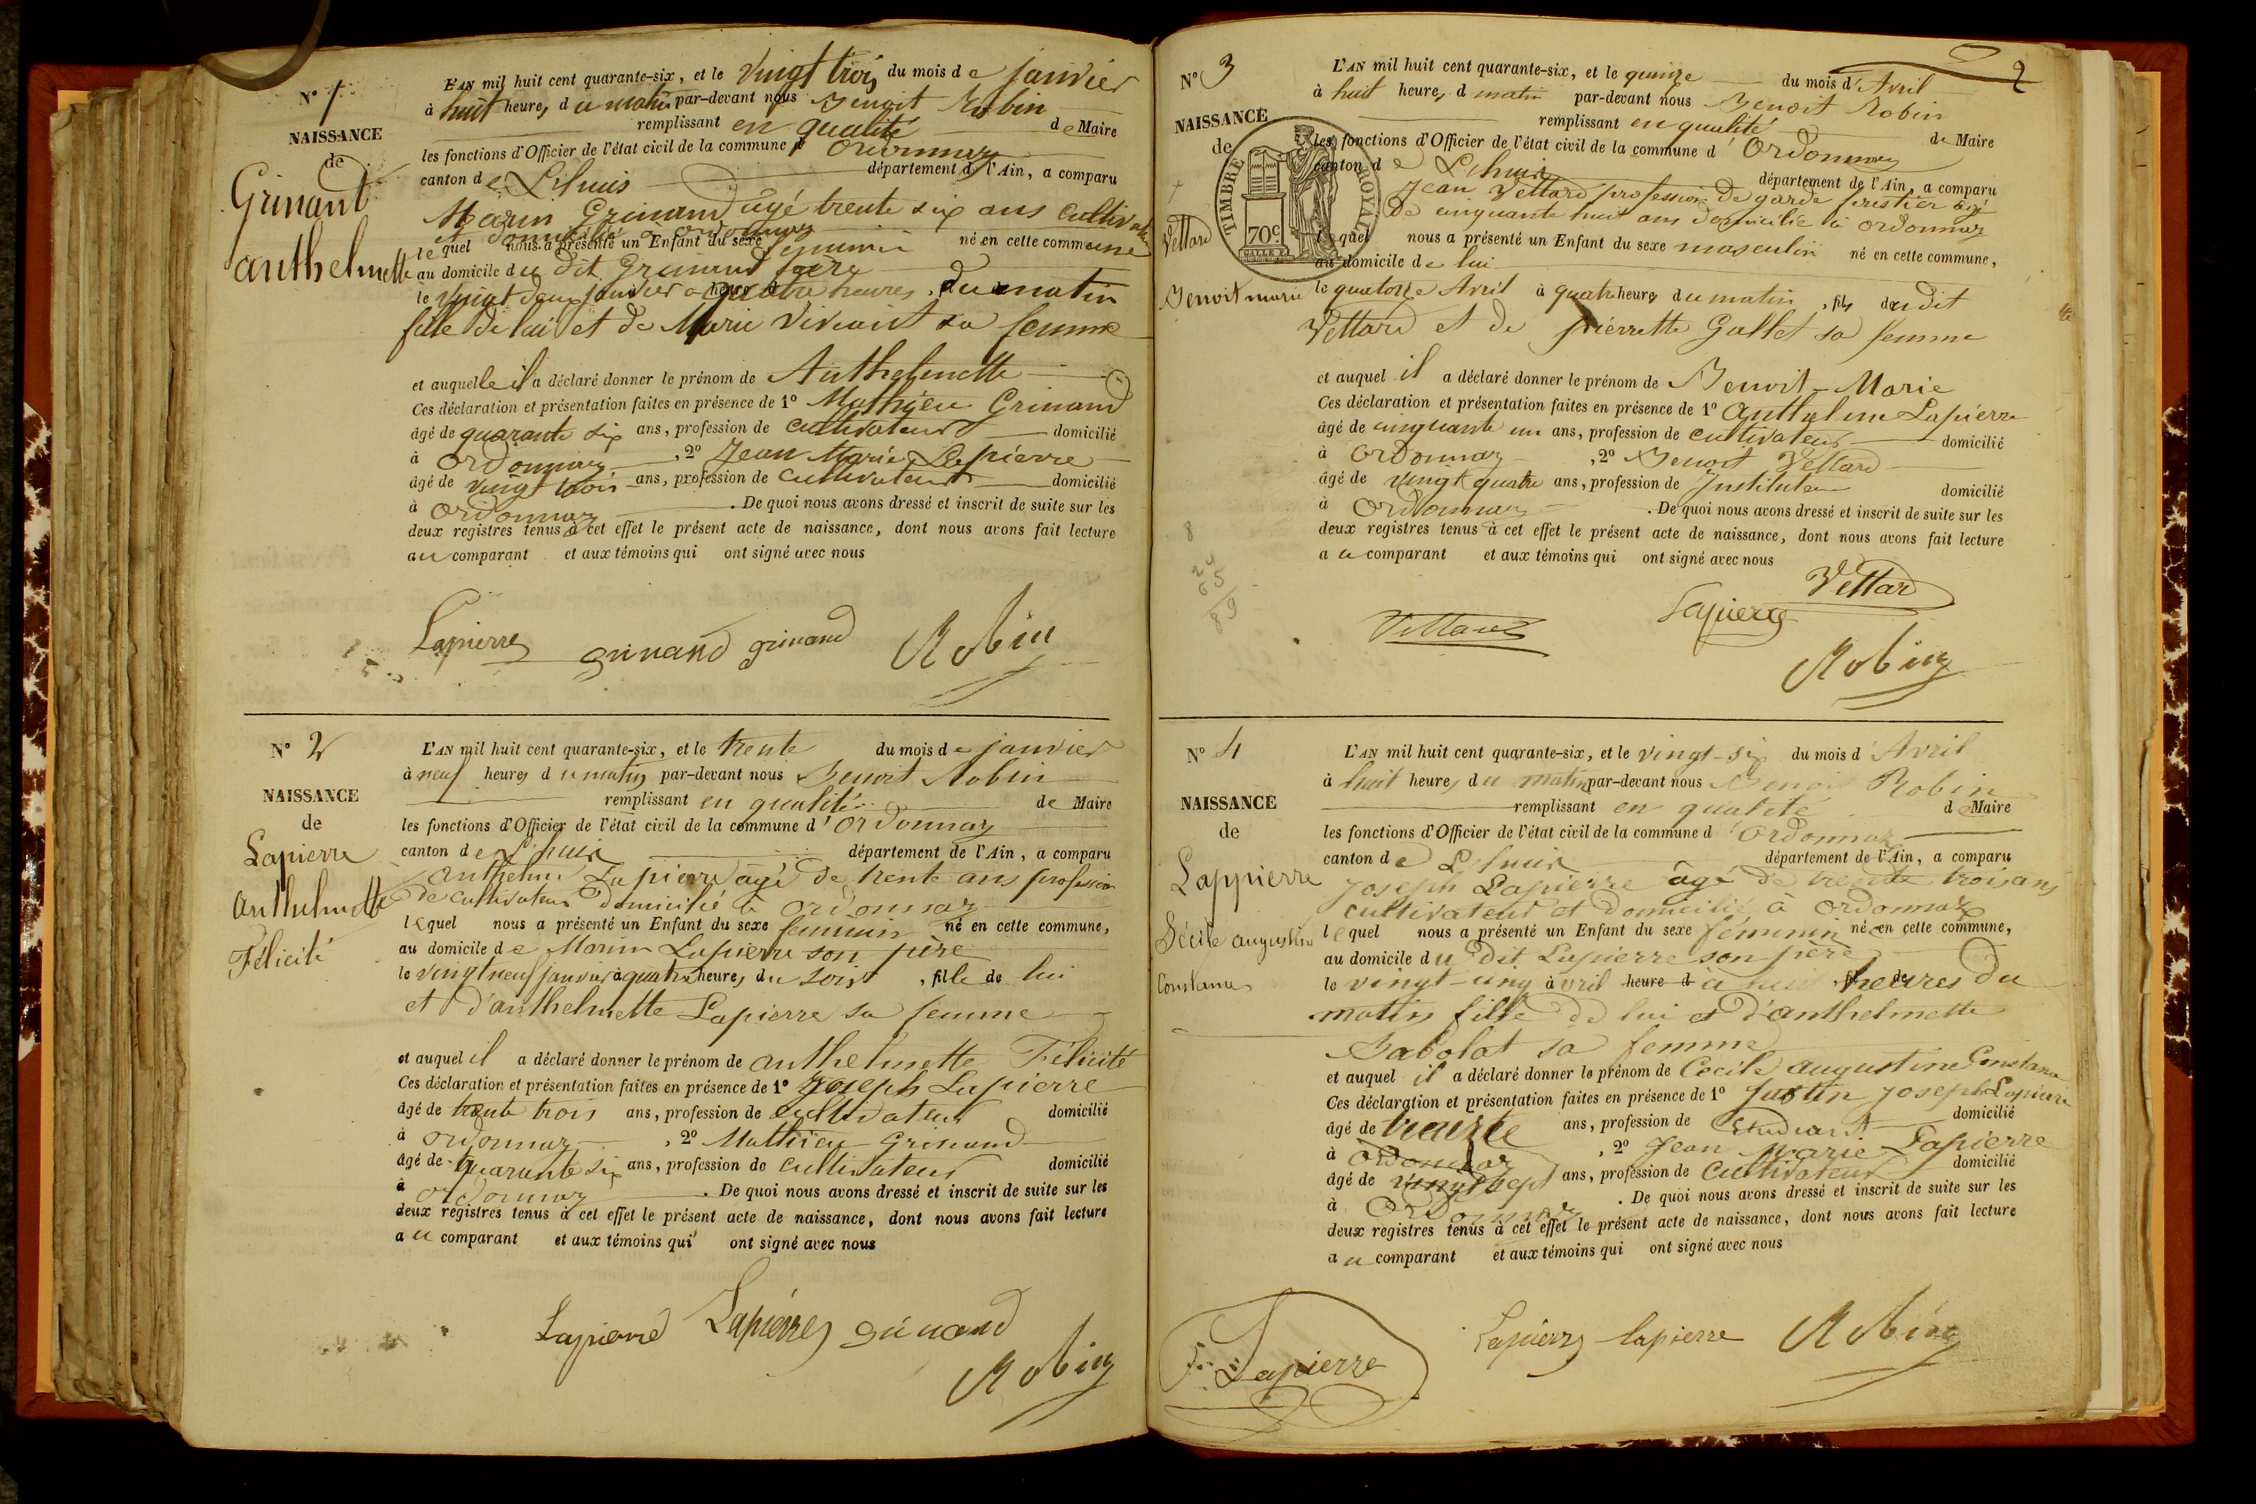 N° 1
NAISSANCE
de
Grinand
anthelmette
L'AN mil huit cent quarante-six, et le vingt trois du mois de janvier
à huit heures du matin par-devant nous Benoit Robin
remplissant en qualité de Maire
les fonctions d'Officier de l'état civil de la commune d'Ordonnaz
canton de Lhuis département de l'Ain, a comparu
Marin Grinand âgé trente six ans cultivateur
et domicilié à ordonnaz
lequel nous a présenté un Enfant du sexe féminin né en cette commune
au domicile du dit Grinand père
le vingt deux janvier à quatre heures du matin
fille de lui et de Marie sa femme
et auquelle il a déclaré donner le prénom de Anthelmette
Ces déclaration et présentation faites en présence de 1° Mathieu Grinand
âgé de quarante six ans, profession de cultivateur domicilié
à ordonnaz, 2° Jean Marie Lapierre
âgé de vingt trois ans, profession de cultivateur domicilié
à ordonnaz. De quoi nous avons dressé et inscrit de suite sur les
deux registres tenus à cet effet le présent acte de naissance, dont nous avons fait lecture
au comparant et aux témoins qui ont signé avec nous
Lapierre grinand grinand Robin
N° 2
NAISSANCE
de
Lapierre
anthelmette
Félicité
L'AN mil huit cent quarante-six, et le trente du mois de janvier
à neuf heures du matin par-devant nous Benoit Robin
remplissant en qualité de Maire
les fonctions d'Officier de l'état civil de la commune d'Ordonnaz
canton de Lhuis département de l'Ain, a comparu
anthelme Lapierre âgé de trente ans profession
de cultivateur domicilié à ordonnaz
lequel nous a présenté un Enfant du sexe féminin né en cette commune,
au domicile de Marin Lapierre son père
le vingt neuf janvier à quatre heures du soir, fille de lui
et d'anthelmette Lapierre sa femme
et auquel il a déclaré donner le prénom de anthelmette Félicité
Ces déclaration et présentation faites en présence de 1° Joseph Lapierre
âgé de trente trois ans, profession de cultivateur domicilié
à ordonnaz, 2° Mathieu Grinand
âgé de quarante six ans, profession de cultivateur domicilié
à ordonnaz. De quoi nous avons dressé et inscrit de suite sur les
deux registres tenus à cet effet le présent acte de naissance, dont nous avons fait lecture
au comparant et aux témoins qui ont signé avec nous
Lapierre Lapierre grinand
Robin
2
N° 3
NAISSANCE
de
Vettard
Benoit marie
TIMBRE ROYAL
70c.
L'AN mil huit cent quarante-six, et le quinze du mois d'Avril
à huit heures d matin par-devant nous Benoit Robin
remplissant en qualité de Maire
les fonctions d'Officier de l'état civil de la commune d'Ordonnaz
canton de Lhuis département de l'Ain, a comparu
Jean Vettard profession de garde forestier âgé
de cinquante huit ans domicilié à ordonnaz
lequel nous a présenté un Enfant du sexe masculin né en cette commune,
au domicile de lui
le quatorze Avril à quatre heures du matin, fils du dit
Vettard et de pierrette Gallet sa femme
et auquel il a déclaré donner le prénom de Benoit-Marie
Ces déclaration et présentation faites en présence de 1° Anthelme Lapierre
âgé de cinquante un ans, profession de cultivateur domicilié
à Ordonnaz, 2° Benoit Vettard
âgé de vingt quatre ans, profession de Instituteur domicilié
à Ordonnaz. De quoi nous avons dressé et inscrit de suite sur les
deux registres tenus à cet effet le présent acte de naissance, dont nous avons fait lecture
au comparant et aux témoins qui ont signé avec nous
8
24
65
89
Vettard
Vettard Lapierre
Robin
N° 4
NAISSANCE
de
Lappierre
Sécile augustine
Constance
L'AN mil huit cent quarante-six, et le vingt-six du mois d'Avril
à huit heures du matin par-devant nous Benoit Robin
remplissant en qualité de Maire
les fonctions d'Officier de l'état civil de la commune d'Ordonnaz
canton de Lhuis département de l'Ain, a comparu
Joseph Lapierre âgé de trente trois ans
cultivateur et domicilié à ordonnaz
lequel nous a présenté un Enfant du sexe féminin né en cette commune,
au domicile du dit Lapierre son père
le vingt-cinq avril heure d à heures du
matin fille de lui et d'anthelmette
Babolat sa femme
et auquel il a déclaré donner le prénom de Cécile augustine Constance
Ces déclaration et présentation faites en présence de 1° Justin Joseph Lapierre
âgé de trente ans, profession de Etudiant domicilié
à Ordonnaz, 2° Jean Marie Lapierre
âgé de vingt sept ans, profession de cultivateur domicilié
à Ordonnaz. De quoi nous avons dressé et inscrit de suite sur les
deux registres tenus à cet effet le présent acte de naissance, dont nous avons fait lecture
au comparant et aux témoins qui ont signé avec nous
Lapierre Lapierre lapierre Robin